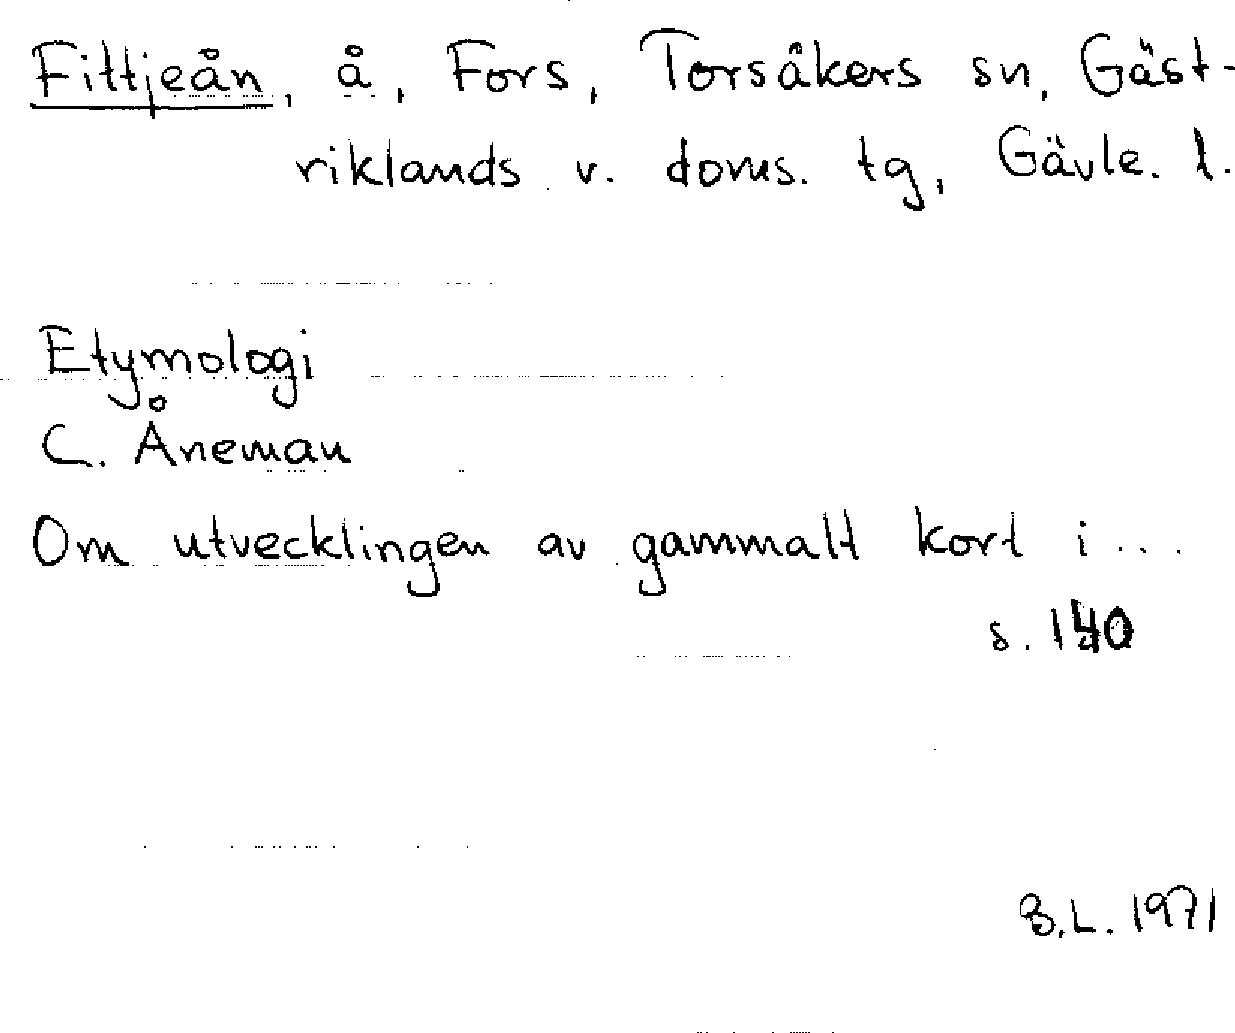 Fittjeån, å, Fors, Torsåkers sn, Gäst-
riklands v. doms. tg, Gävle. l.
Etymologi
C. Åneman
Om utvecklingen av gammalt kort i...
s. 140
B.L. 1971